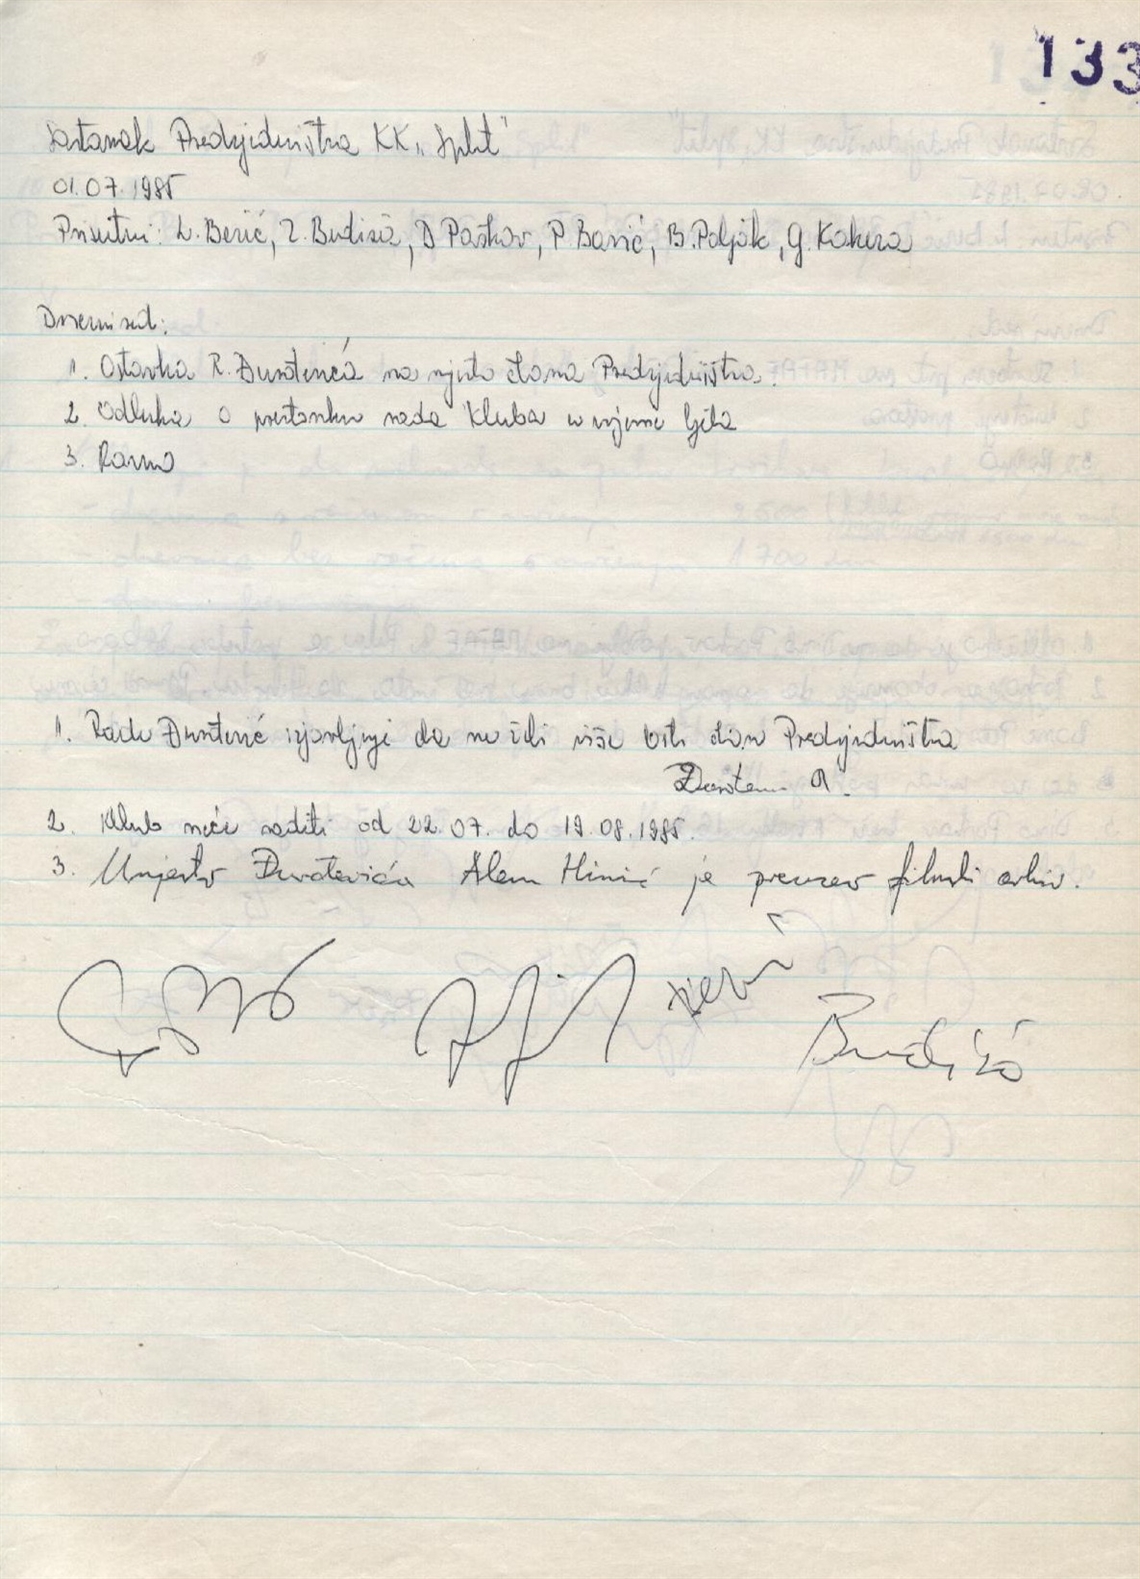 133
Sastanak Predsjedništva KK „Split"
01.07.1985
Prisutni: L. Berić, Z. Budisa, D Poskov, P Bavić, B. Poljak, G.
Dnevni red:
1. Ostavka R. Đurđevića na mjesto člana Predsjedništva.
2. Odluka o prestanku rada Kluba u vrijeme ljeta
3. Razno
1. Rade izjavljuje da ne želi više biti član Predsjedništva
2. Klub neće raditi od 22.07. do 19.08.1985.
3. Umjesto Alem je preuzeo filmski arhiv.
Budiša